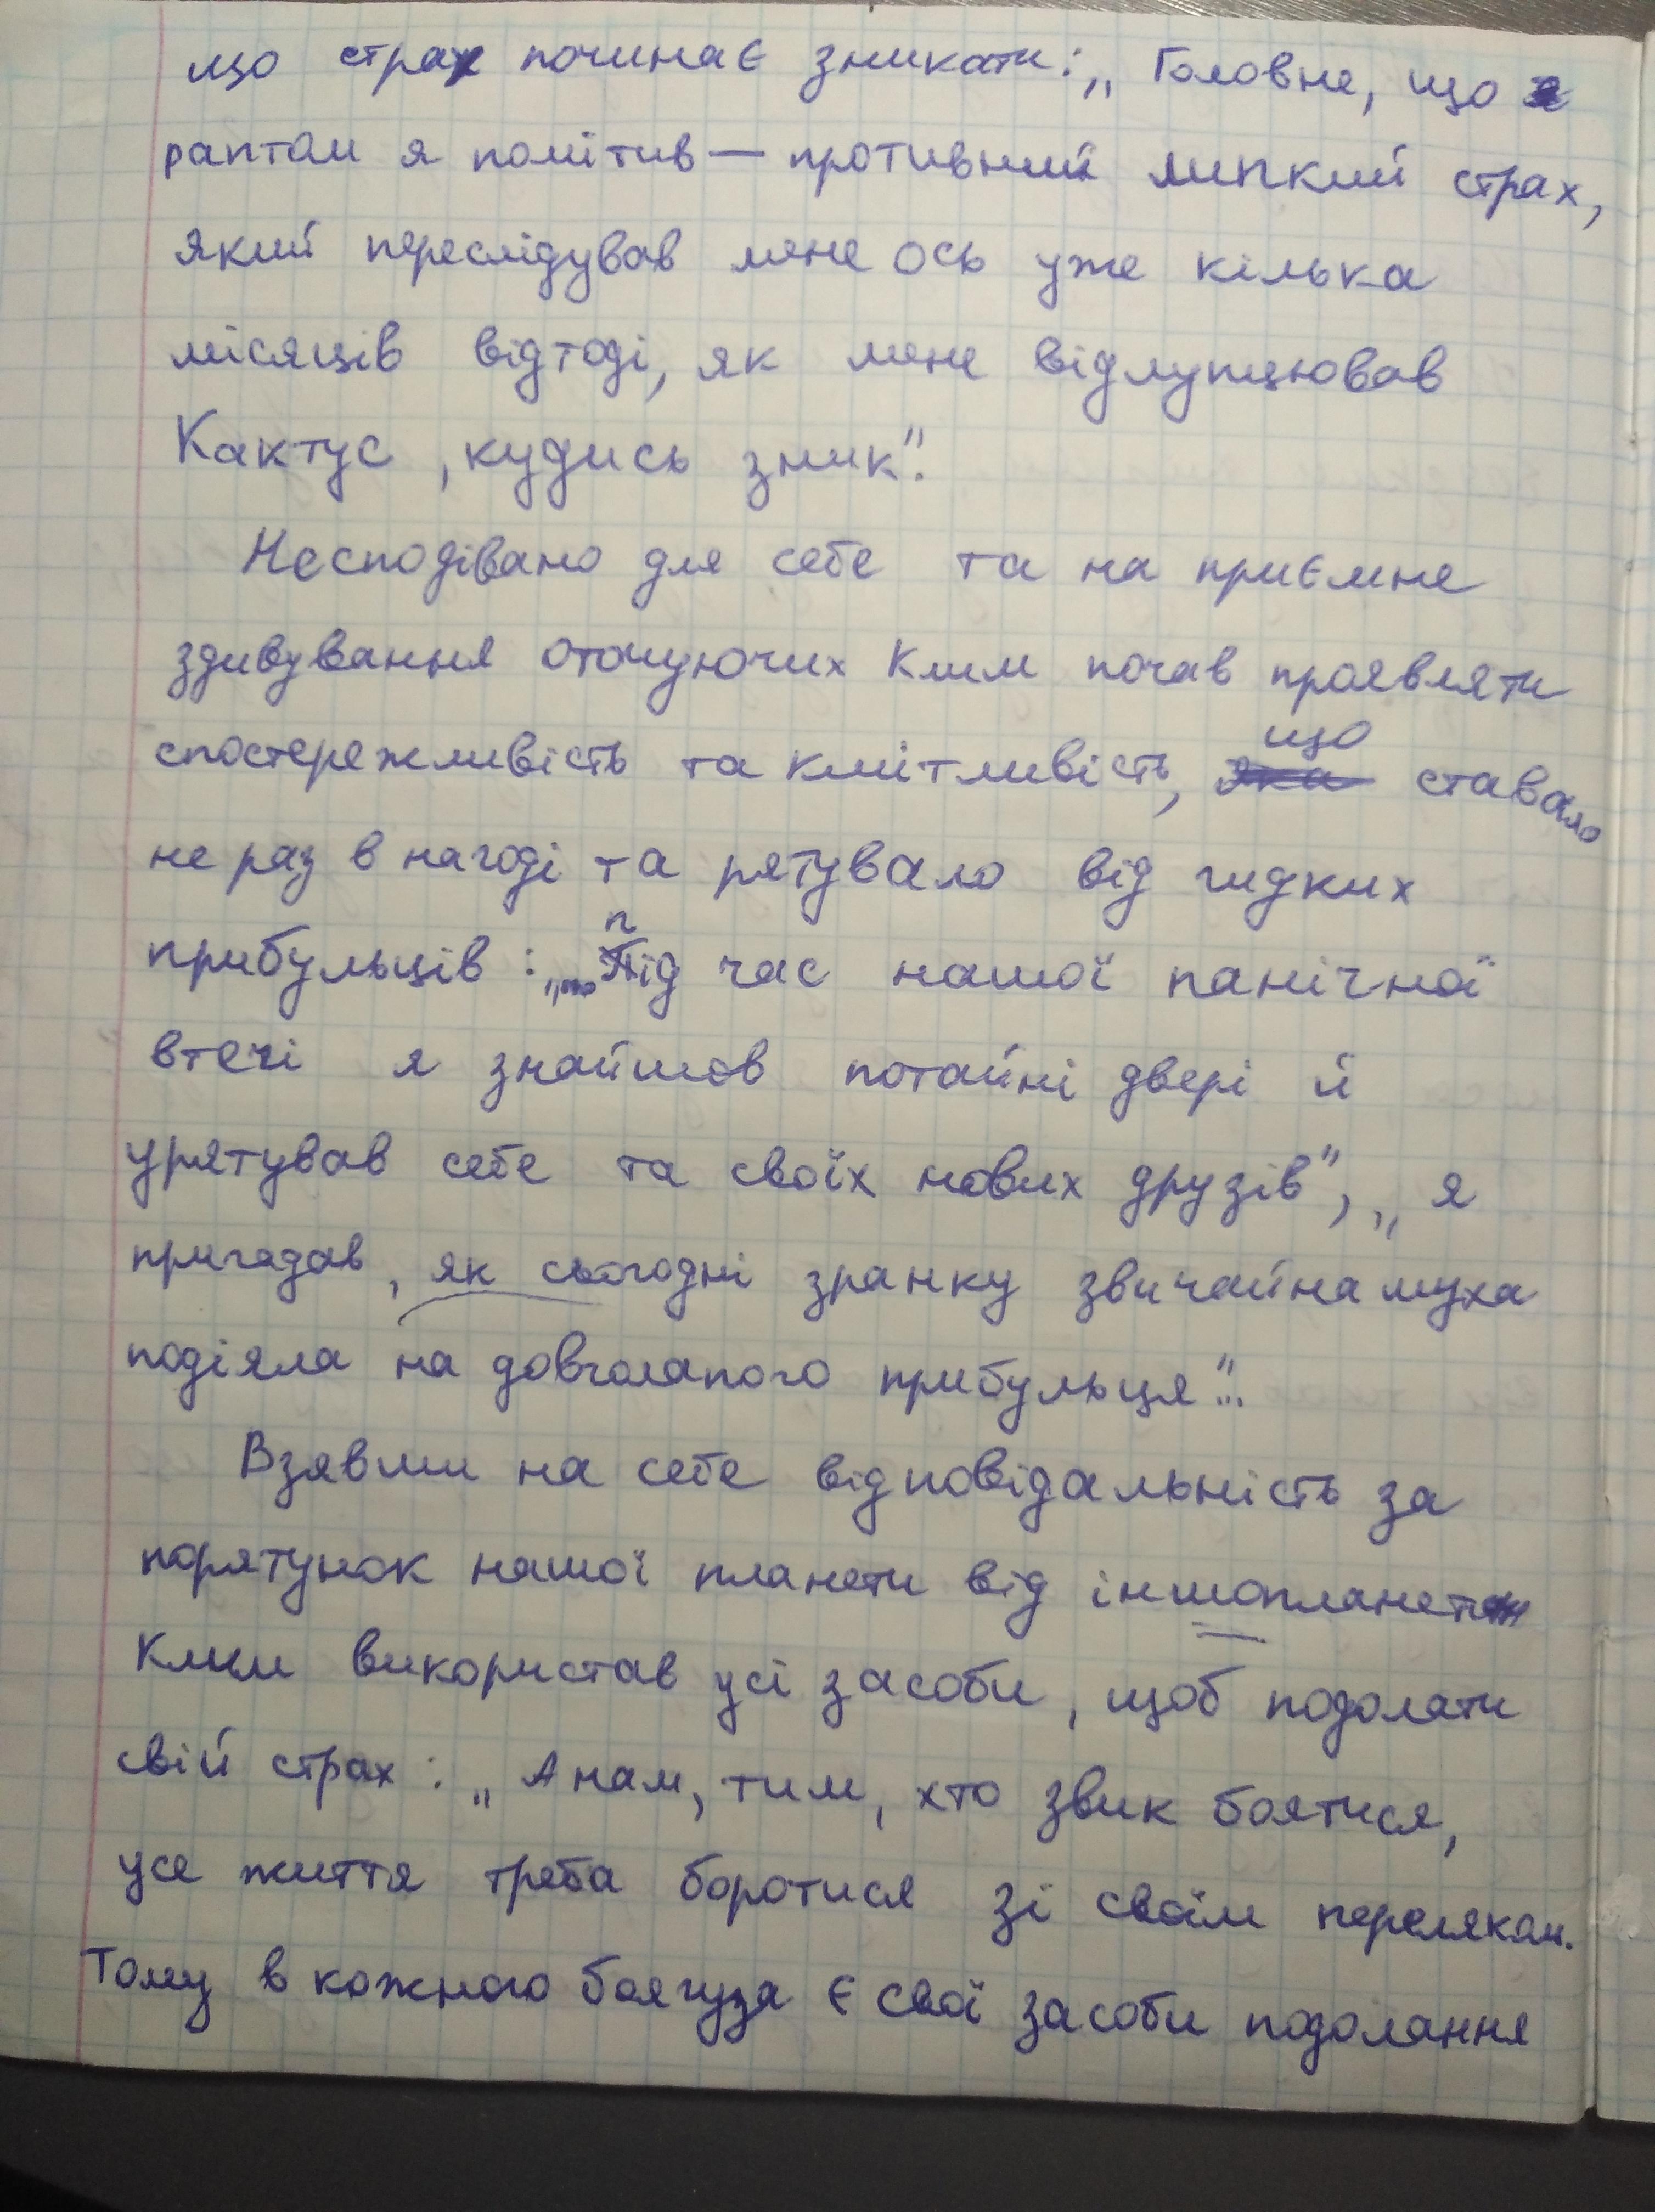 що страх починає зникати: „Головне, що
раптом я помітив — противний липкий страх,
який переслідував мене ось уже кілька
місяців відтоді, як мене відлупцював
Кактус, кудись зник".
Несподівано для себе та на приємне
здивування оточуючих Клим почав проявляти
спостережливість та кмітливість, що ставало
не раз в нагоді та рятувало від гидких
прибульців: „...під час нашої панічної
втечі я знайшов потайні двері й
урятував себе та своїх нових друзів", „я
пригадав, як сьогодні зранку звичайна муха
подіяла на довголапого прибульця"...
Взявши на себе відповідальність за
порятунок нашої планети від іншопланетян
Клим використав усі засоби, щоб подолати
свій страх: „А нам, тим, хто звик боятися,
усе життя треба боротися зі своїм переляком.
Тому в кожного боягуза є свої засоби подолання